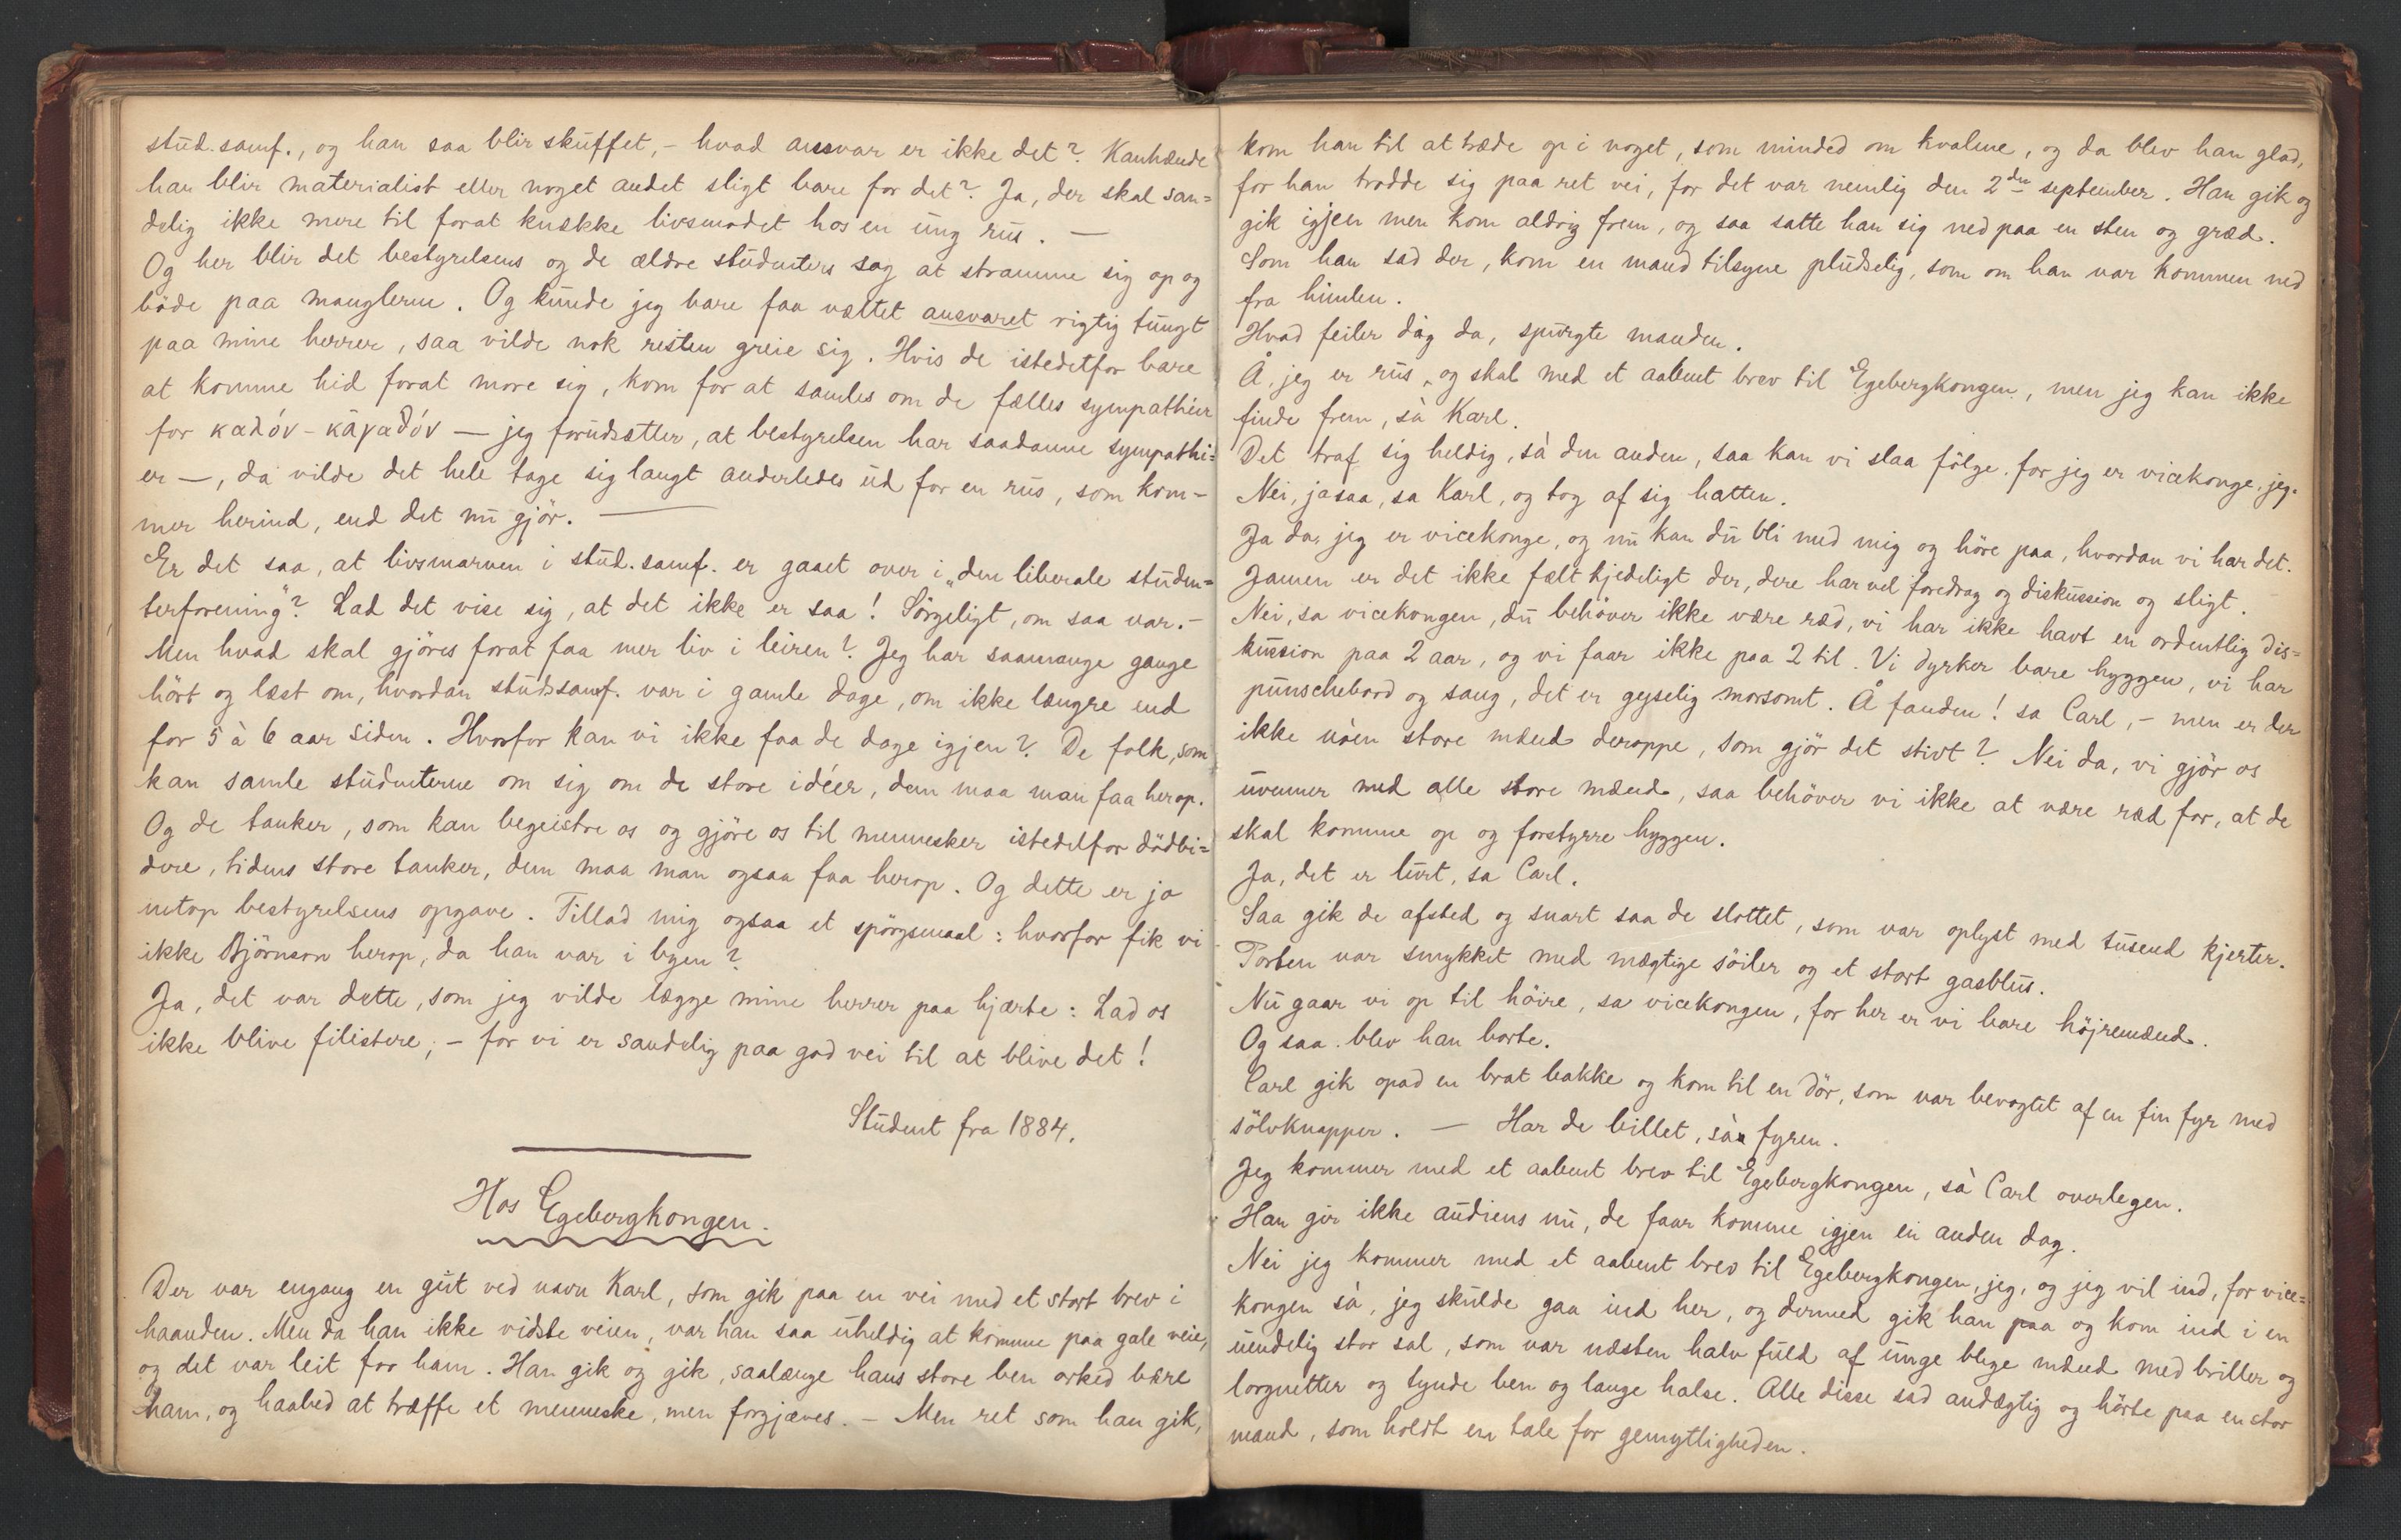 stud. samf., og han saa blir skuffet, – hvad ansvar er ikke det? Kanhænde
han blir materialist eller noget andet sligt bare for det? Ja, der skal san=
delig ikke mere til forat knække livsmodet hos en ung rus. —
Og her blir det bestyrelsens og de ældre studenters sag at stramme sig op og
böde paa manglerne. Og kunde jeg bare faa væltet ansvaret rigtig tungt
paa mine herrer, saa vilde nok resten greie sig. Hvis de istedetfor bare
at komme hid forat more sig, kom for at samles om de fælles sympathier
for καλόν-κἀγαθόν — jeg forudsætter, at bestyrelsen har saadanne sympathi=
er —, da vilde det hele tage sig langt anderledes ud for en rus, som kom-
mer herind, end det nu gjör. —
Er det saa, at livsmarven i stud. samf. er gaaet over i „den liberale studen=
terforening"? Lad det vise sig, at det ikke er saa! Sörgeligt, om saa var. –
Men hvad skal gjöres forat faa mer liv i leiren? Jeg har saamange gange
hört og læst om, hvordan studs.samf. var i gamle dage, om ikke længre end
for 5 à 6 aar siden. Hvorfor kan vi ikke faa de dage igjen? De folk, som
kan samle studenterne om sig om de store idéer, dem maa man faa herop.
Og de tanker, som kan begeistre os og gjöre os til mennesker istedetfor dödbi=
dere, tidens store tanker, dem maa man ogsaa faa herop. Og dette er jo
netop bestyrelsens opgave. Tillad mig ogsaa et spörgsmaal: hvorfor fik vi
ikke Björnson herop, da han var i byen?
Ja, det var dette, som jeg vilde lægge mine herrer paa hjærte: Lad os
ikke blive filistere; – for vi er sandelig paa god vei til at blive det!
Student fra 1884.
Hos Egebergkongen.
Der var engang en gut ved navn Karl, som gik paa en vei med et stort brev i
haanden. Men da han ikke vidste veien, var han saa uheldig at komme paa gale veie,
og det var leit for ham. Han gik og gik, saalænge hans store ben orked bære
ham, og haabed at træffe et menneske, men forgjæves. – Men ret som han gik,
kom han til at træde op i noget, som minded om kvalme, og da blev han glad,
for han trodde sig paa ret vei, for det var nemlig den 2den september. Han gik og
gik igjen men kom aldrig frem, og saa satte han sig ned paa en sten og græd.
Som han sad der, kom en mand tilsyne pludselig, som om han var kommen ned
fra himlen.
Hvad feiler dig da, spurgte manden.
Å, jeg er rus, og skal med et aabent brev til Egebergkongen, men jeg kan ikke
finde frem, sà Karl.
Det traf sig heldig, sà den anden, saa kan vi slaa fölge. for jeg er vicekonge, jeg.
Nei, jasaa, sa Karl, og tog af sig hatten.
Ja da, jeg er vicekonge, og nu kan du bli med mig og höre paa, hvordan vi har det.
Jamen er det ikke fælt kjedeligt der, dere har vel foredrag og diskussion og sligt.
Nei, sa vicekongen, du behöver ikke være ræd, vi har ikke havt en ordentlig dis=
kussion paa 2 aar, og vi faar ikke paa 2 til. Vi dyrker bare hyggen, vi har
punschebord og sang, det er gyselig morsomt. Å fanden! sa Carl, – men er der
ikke nòen store mænd deroppe, som gjör det stivt? Nei da, vi gjör os
uvenner med alle store mænd, saa behöver vi ikke at være ræd for, at de
skal komme op og forstyrre hyggen.
Ja, det er lurt, sa Carl.
Saa gik de afsted og snart saa de slottet, som var oplyst med tusend kjerter.
Porten var smykket med mægtige söiler og et stort gasblus.
Nu gaar vi op til höire, sa vicekongen, for her er vi bare höjremænd.
Og saa blev han borte.
Carl gik opad en brat bakke og kom til en dör, som var bevogtet af en fin fyr med
sölvknapper. — Har de billet, sà fyren.
Jeg kommer med et aabent brev til Egebergkongen, sà Carl overlegen.
Han gir ikke audiens nu, de faar komme igjen en anden dag.
Nei jeg kommer med et aabent brev til Egebergkongen, jeg, og jeg vil ind, for vice=
kongen sà, jeg skulde gaa ind her, og dermed gik han paa og kom ind i en
uendelig stor sal, som var næsten halv fuld af unge blege mænd med briller og
lorgnetter og tynde ben og lange halse. Alle disse sad andægtig og hörte paa en stor
mand, som holdt en tale for gemytligheden.